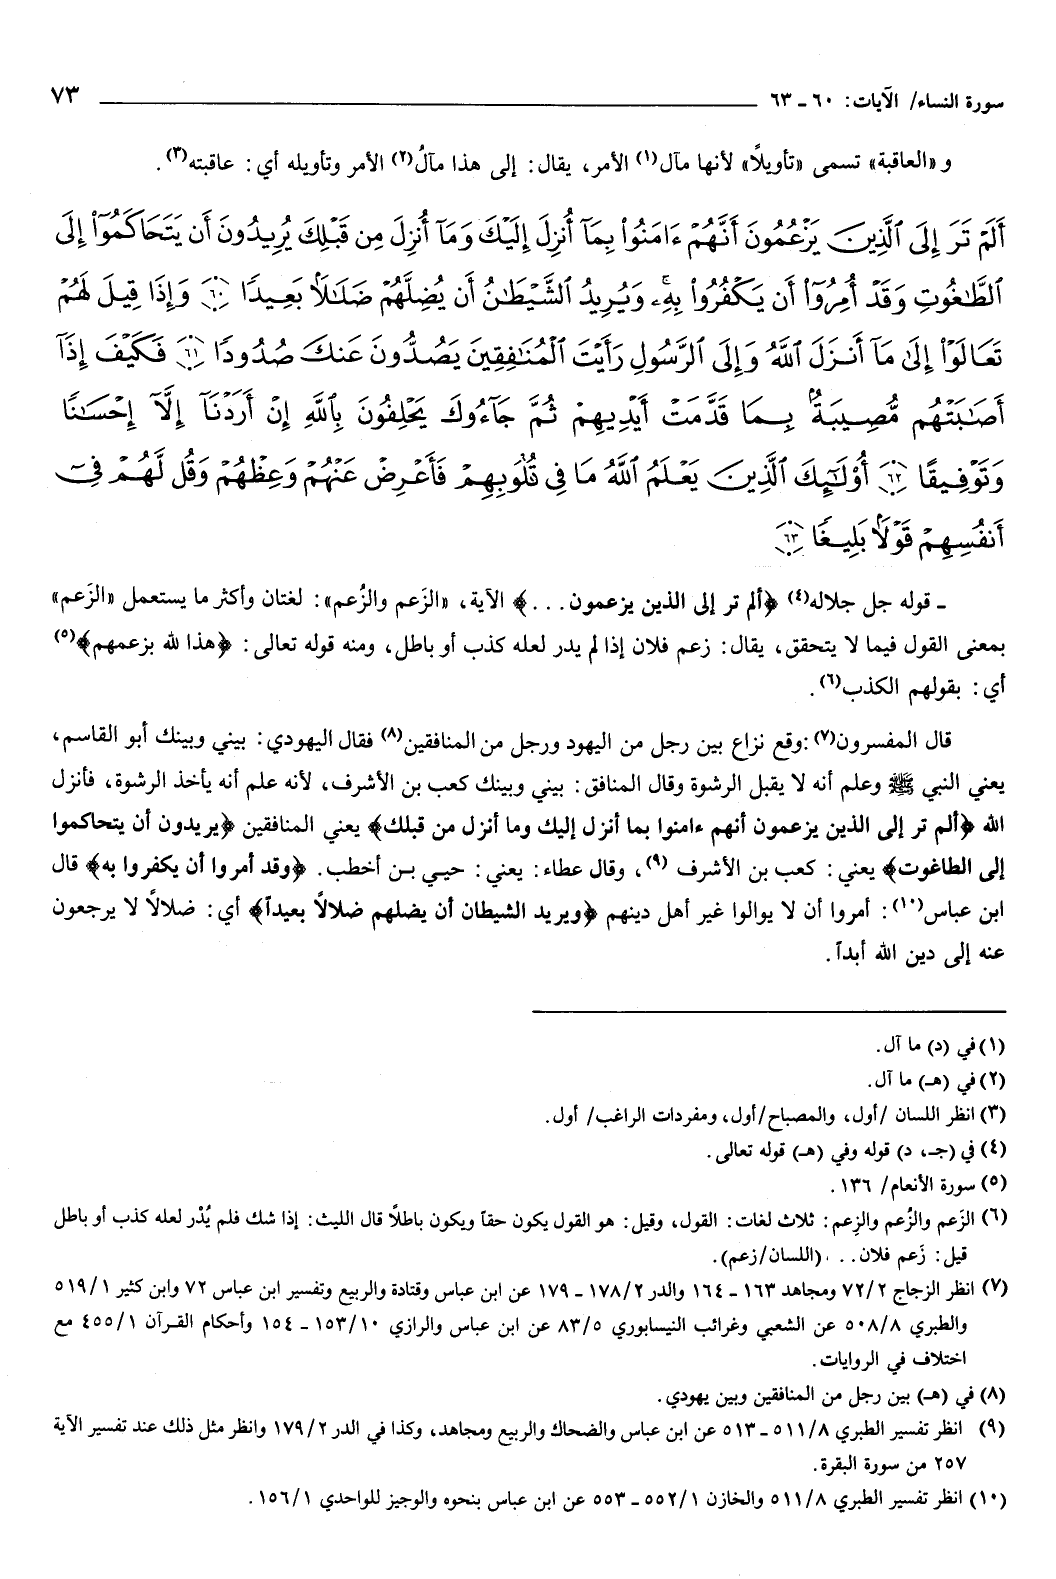 سورة النساء/ الآيات: ٦٠ ـ ٦٣ ٧٣
و «العاقبة» تسمى «تأويلاً» لأنها مآل(١) الأمر، يقال: إلى هذا مآلُ(٢) الأمر وتأويله أي: عاقبته(٣).
أَلَمْ تَرَ إِلَى ٱلَّذِينَ يَزْعُمُونَ أَنَّهُمْ ءَامَنُوا۟ بِمَآ أُنزِلَ إِلَيْكَ وَمَآ أُنزِلَ مِن قَبْلِكَ يُرِيدُونَ أَن يَتَحَاكَمُوٓا۟ إِلَى
ٱلطَّـٰغُوتِ وَقَدْ أُمِرُوٓا۟ أَن يَكْفُرُوا۟ بِهِۦ وَيُرِيدُ ٱلشَّيْطَـٰنُ أَن يُضِلَّهُمْ ضَلَـٰلًۢا بَعِيدًا ٦٠ وَإِذَا قِيلَ لَهُمْ
تَعَالَوْا۟ إِلَىٰ مَآ أَنزَلَ ٱللَّهُ وَإِلَى ٱلرَّسُولِ رَأَيْتَ ٱلْمُنَـٰفِقِينَ يَصُدُّونَ عَنكَ صُدُودًا ٦١ فَكَيْفَ إِذَآ
أَصَـٰبَتْهُم مُّصِيبَةٌۢ بِمَا قَدَّمَتْ أَيْدِيهِمْ ثُمَّ جَآءُوكَ يَحْلِفُونَ بِٱللَّهِ إِنْ أَرَدْنَآ إِلَّآ إِحْسَـٰنًا
وَتَوْفِيقًا ٦٢ أُو۟لَـٰٓئِكَ ٱلَّذِينَ يَعْلَمُ ٱللَّهُ مَا فِى قُلُوبِهِمْ فَأَعْرِضْ عَنْهُمْ وَعِظْهُمْ وَقُل لَّهُمْ فِىٓ
أَنفُسِهِمْ قَوْلًۢا بَلِيغًا ٦٣
ـ قوله جل جلاله(٤) ﴿ألم تر إلى الذين يزعمون...﴾ الآية، «الزَعم والزُعم»: لغتان وأكثر ما يستعمل «الزَعم»
بمعنى القول فيما لا يتحقق، يقال: زعم فلان إذا لم يدر لعله كذب أو باطل، ومنه قوله تعالى: ﴿هذا لله بزعمهم﴾(٥)
أي: بقولهم الكذب(٦).
قال المفسرون(٧): وقع نزاع بين رجل من اليهود ورجل من المنافقين(٨) فقال اليهودي: بيني وبينك أبو القاسم،
يعني النبي ﷺ وعلم أنه لا يقبل الرشوة وقال المنافق: بيني وبينك كعب بن الأشرف، لأنه علم أنه يأخذ الرشوة، فأنزل
الله ﴿ألم تر إلى الذين يزعمون أنهم ءامنوا بما أنزل إليك وما أنزل من قبلك﴾ يعني المنافقين ﴿يريدون أن يتحاكموا
إلى الطاغوت﴾ يعني: كعب بن الأشرف (٩)، وقال عطاء: يعني: حيـي بـن أخطب. ﴿وقد أمروا أن يكفروا به﴾ قال
ابن عباس(١٠): أمروا أن لا يوالوا غير أهل دينهم ﴿ويريد الشيطان أن يضلهم ضلالاً بعيداً﴾ أي: ضلالاً لا يرجعون
عنه إلى دين الله أبداً.
(١) في (د) ما آل.
(٢) في (هـ) ما آل.
(٣) انظر اللسان /أول، والمصباح/أول، ومفردات الراغب/ أول.
(٤) في (جـ، د) قوله وفي (هـ) قوله تعالى.
(٥) سورة الأنعام/ ١٣٦.
(٦) الزَعم والزُعم والزِعم: ثلاث لغات: القول، وقيل: هو القول يكون حقاً ويكون باطلاً قال الليث: إذا شك فلم يُدْر لعله كذب أو باطل
قيل: زَعم فلان... (اللسان/زعم).
(٧) انظر الزجاج ٧٢/٢ ومجاهد ١٦٣ ـ ١٦٤ والدر ١٧٨/٢ ـ ١٧٩ عن ابن عباس وقتادة والربيع وتفسير ابن عباس ٧٢ وابن كثير ٥١٩/١
والطبري ٥٠٨/٨ عن الشعبي وغرائب النيسابوري ٨٣/٥ عن ابن عباس والرازي ١٥٣/١٠ ـ ١٥٤ وأحكام القـرآن ٤٥٥/١ مع
اختلاف في الروايات.
(٨) في (هـ) بين رجل من المنافقين وبين يهودي.
(٩) انظر تفسير الطبري ٥١١/٨ ـ ٥١٣ عن ابن عباس والضحاك والربيع ومجاهد، وكذا في الدر ١٧٩/٢ وانظر مثل ذلك عند تفسير الآية
٢٥٧ من سورة البقرة.
(١٠) انظر تفسير الطبري ٥١١/٨ والخازن ٥٥٢/١ ـ ٥٥٣ عن ابن عباس بنحوه والوجيز للواحدي ١٥٦/١.